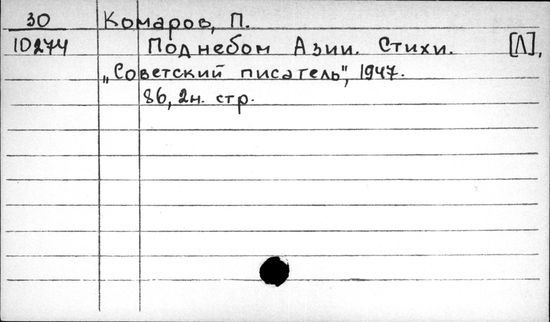 30 Комаров, П.
10274 Под небом Азии. Стихи. [Л],
„Советский писатель", 1947.
86, 2н. стр.